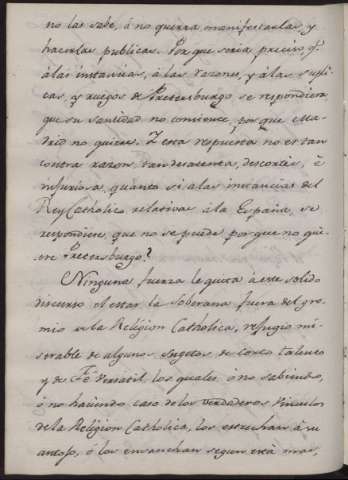 no las sabe, ó no querra manifestarlas, y
hacerlas publicas. Por que seria preciso q.e
á las instancias, á las razones, y á las supli
cas, y ruegos de Pretersburgo se respondiera
que su santidad no consiente, por que Ma
drid no quiere. Y esta respuesta no es tan
contra razon, tan desatenta, descortés, é
injuriosa, quanto si á las instancias del
Rey Catholico relativas á la España, se
respondiere, que no se puede por que no qui
ere Pretersburgo?
Ninguna fuerza le quita á este solido
discurso el estar la Soberana fuera del gre
mio de la Religion Catholica, refugio mi
serable de algunos sugetos de corto talento
y de Fé versatil, los quales ó no sabiendo,
ó no haciendo caso de los verdaderos vinculos
de la Religion Catholica, los estrechan á su
antojo, ó los ensanchan segun está mas,